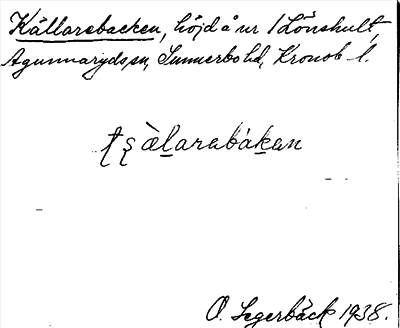 Källarebacken, höjd å nr 1 Lönshult,
Agunnaryds sn, Sunnerbo hd, Kronob. l.
tʂàl̲arabák̲an
O. Segerbäck 1938.